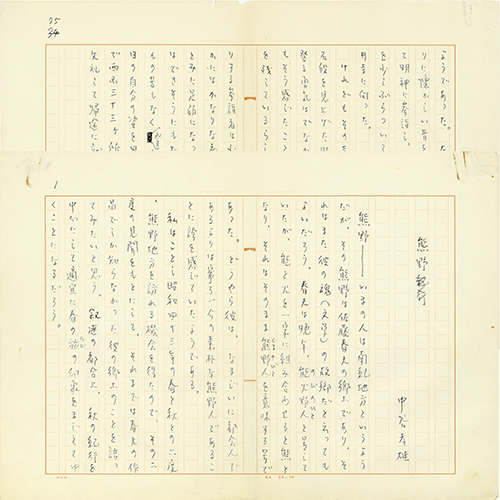 ようであった。た
りに懐かしい昔
て明神に参詣し、
を少しぶらついて
に向った。
けれどもその
石段を見上げた
登る勇気はでなか
もそう感じたこと
を残しているらし
りする参詣者は
かたはかなりな
とみた
はできそうにも
もの苦しなく
日の自分の姿を
で西国三十三ヶ所
失礼して帰途に
1
熊野紀行
中谷孝雄
熊野――いまの人は南紀地方というよう
だが、その熊野は佐藤春夫の郷土であり、そ
れはまた彼の魂(文学)の故郷だと云っても
よいだろう。春夫は晩年、能火野人と号して
いたが、能と火を一字に組み合わせると熊と
なり、それはそのまま熊野人を意味する号で
あった。どうやら彼は、なまじいに都会人で
あるよりは寧ろ一介の素朴な熊野人であるこ
とに誇を感じていたようである。
私はことし昭和四十三年の春と秋との二度
、熊野地方を訪れる機会を得たので、その二
度の見聞をもとにして、それまでは春夫の作
品でしか知らなかった彼の郷土のことを語っ
てみたいと思う。叙述の都合上、秋の紀行を
中心にして適宜に春の旅の印象をまじえてゆ
くことになるだろう。